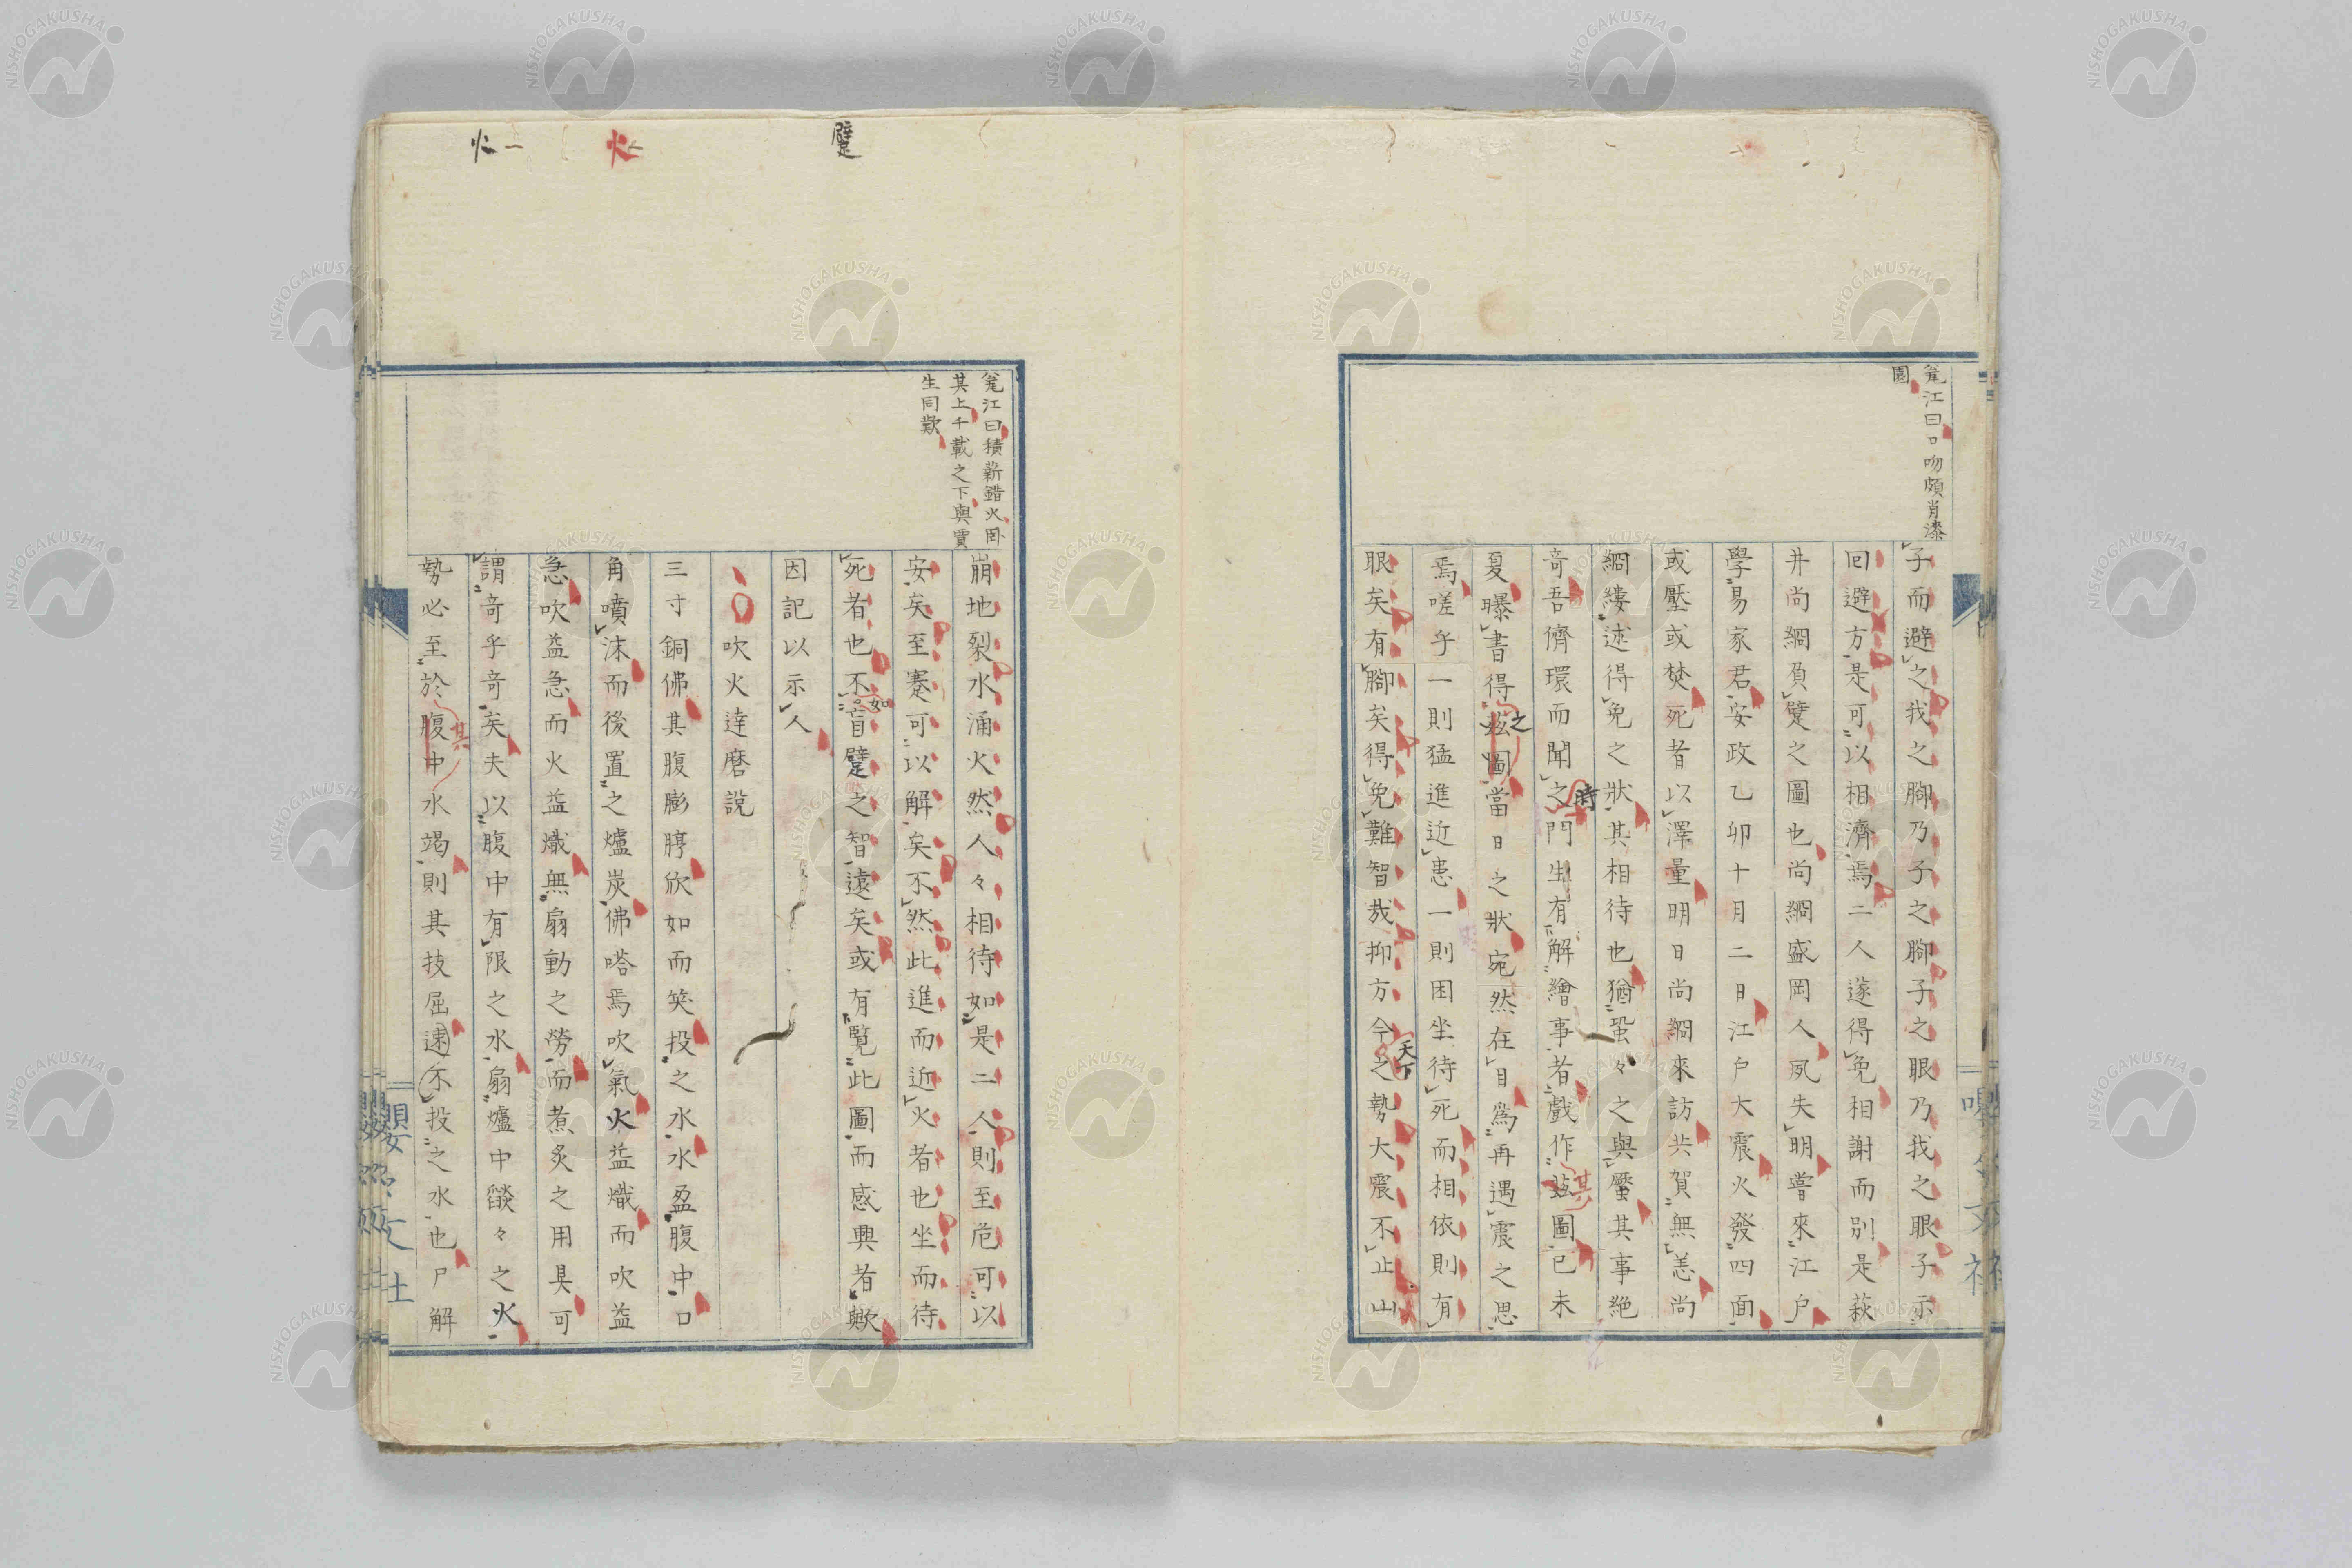 毚江曰口吻頗肖漆
園
子而避之我之腳乃子之腳子之眼乃我之眼子示
回避方是可以相濟焉二人遂得免相謝而別是萩
井尚綱負躄之圖也尚綱盛岡人夙失明嘗來江戶
學易家君安政乙卯十月二日江戶大震火發四面
或壓或焚死者以澤量明日尚綱來訪共賀無恙尚
綱縷述得免之狀其相待也猶蛩々之與蟨其事絕
奇吾儕環而聞之時門生有解繪事者戲作玆其圖已未
夏曝書得玆圖之當日之狀宛然在目為再遇震之思
焉嗟乎一則猛進近患一則困坐待死而相依則有
眼矣有腳矣得免難智哉抑方今天下之勢大震不止山
毚江曰積薪錯火臥
其上千載之下與賈
生同歎
躄
火
火
崩地裂水涌火然人々相待如是二人則至危可以
安矣至蹇可以解矣不然此進而近火者也坐而待
死者也不如盲躄之智遠矣或有覽此圖而感興者歟
因記以示人
吹火達磨說
三寸銅佛其腹膨脝欣如而笑投之水水盈腹中口
角噴沫而後置之爐炭佛嗒焉吹氣火益熾而吹益
急吹益急而火益熾無扇動之勞而煮炙之用具可
謂奇乎奇矣夫以腹中有限之水扇爐中燄々之火
勢必至於腹中其水竭則其技屈速不投之水也尸解
NISHOGAKUSHA